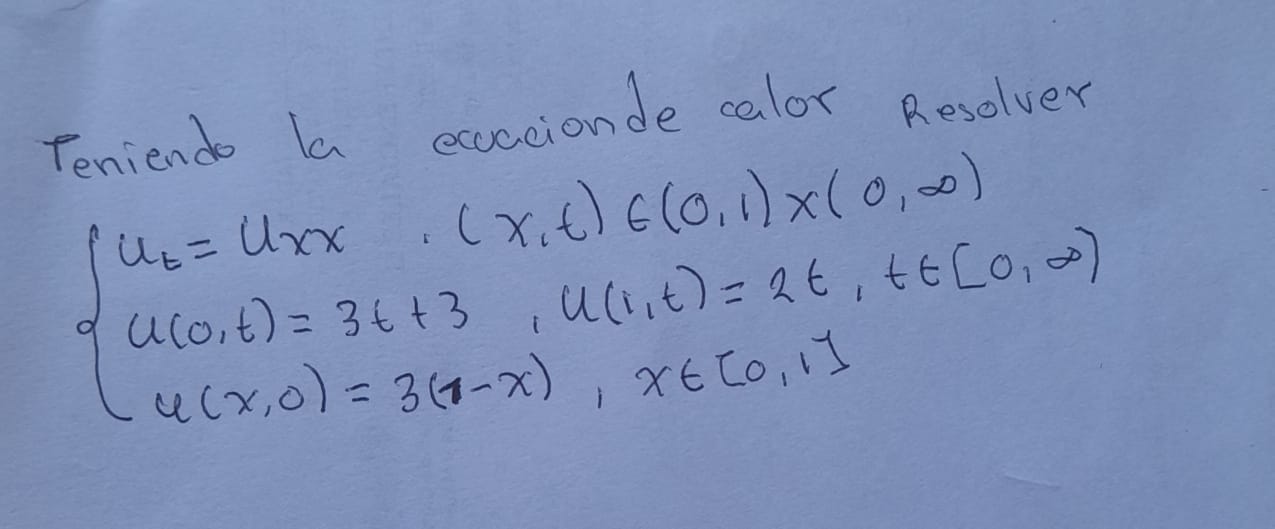 Teniendo la ecuacionde calor Resolver
{ u_t = u_xx , (x,t) ∈ (0,1) x (0,∞)
u(0,t) = 3t+3 , u(1,t) = 2t , t ∈ [0,∞)
u(x,0) = 3(1-x) , x ∈ [0,1]